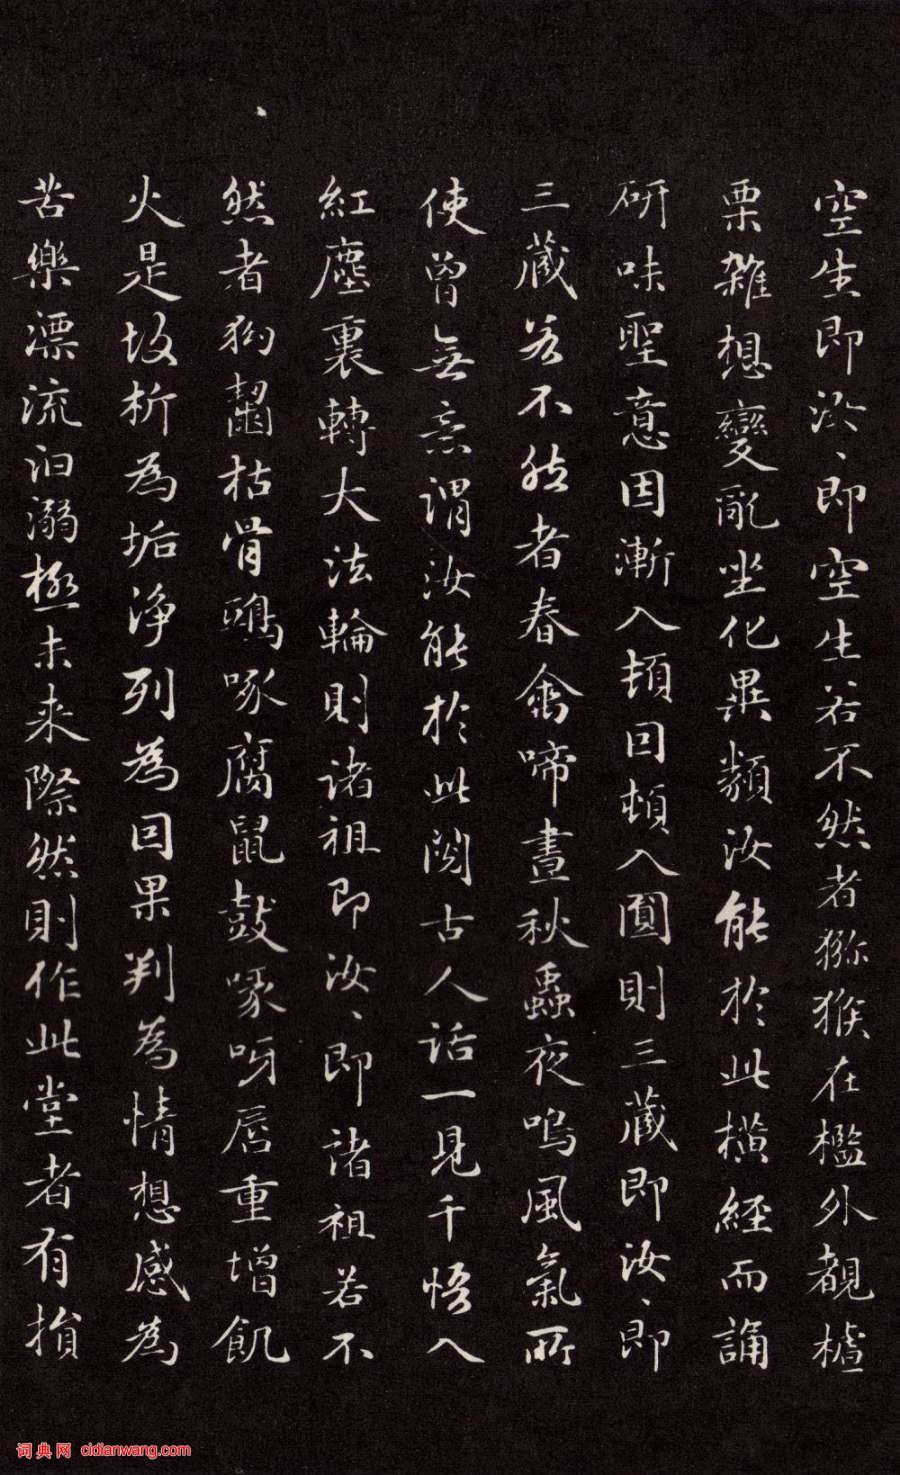 空生即汝、即空生若不然者獼猴在檻外覩樝
栗雜想變亂坐化異類汝能於此橫經而誦
研味聖意因漸入頓因頓入圓則三藏即汝、即
三藏若不然者春禽啼晝秋蟲夜鳴風氣所
使曾無意謂汝能於此閱古人話一見千悟入
紅塵裏轉大法輪則諸祖即汝、即諸祖若不
然者狗齧枯骨鴟啄腐鼠鼓喙呀脣重增飢
火是故析為垢淨列為因果判為情想感為
苦樂漂流汩溺極未來際然則作此堂者有損
词典网 cidianwang.com